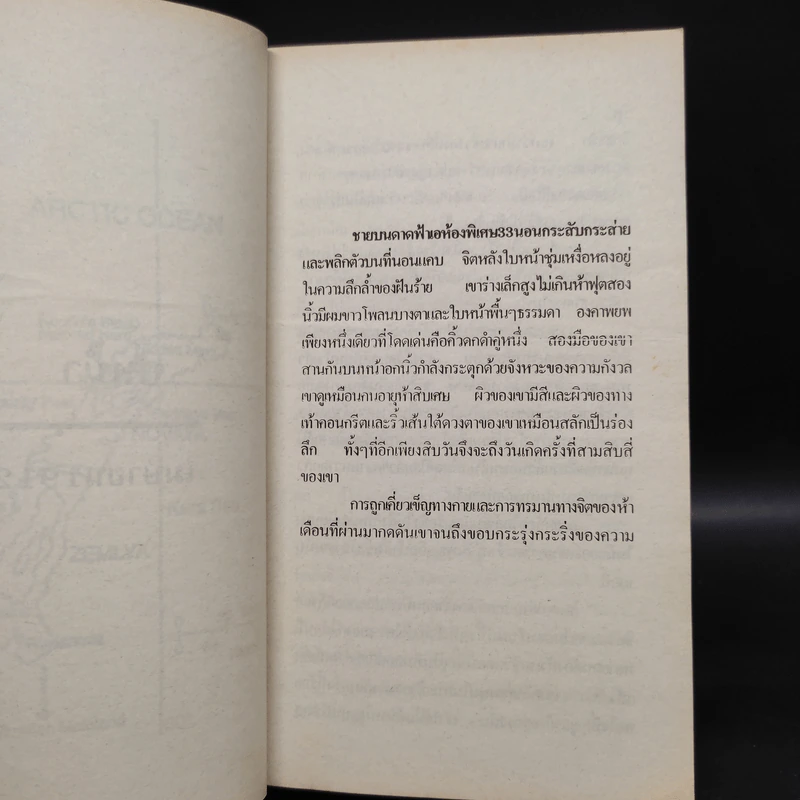 ชายบนดาดฟ้าเอห้องพิเศษ33นอนกระสับกระส่าย
และพลิกตัวบนที่นอนแคบ จิตหลังใบหน้าชุ่มเหงื่อหลงอยู่
ในความลึกล้ำของฝันร้าย เขาร่างเล็กสูงไม่เกินห้าฟุตสอง
นิ้วมีผมขาวโพลนบางตาและใบหน้าพื้นๆธรรมดา องคาพยพ
เพียงหนึ่งเดียวที่โดดเด่นคือคิ้วดกดำคู่หนึ่ง สองมือของเขา
สานกันบนหน้าอกนิ้วกำลังกระตุกด้วยจังหวะของความกังวล
เขาดูเหมือนคนอายุห้าสิบเศษ ผิวของเขามีสีและผิวของทาง
เท้าคอนกรีตและริ้วเส้นใต้ดวงตาของเขาเหมือนสลักเป็นร่อง
ลึก ทั้งๆที่อีกเพียงสิบวันจึงจะถึงวันเกิดครั้งที่สามสิบสี่
ของเขา
การถูกเคี่ยวเข็ญทางกายและการทรมานทางจิตของห้า
เดือนที่ผ่านมากดดันเขาจนถึงขอบกระรุ่งกระริ่งของความ